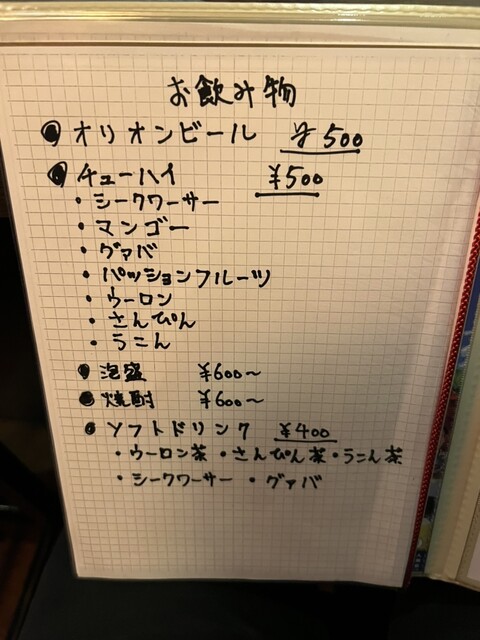 お飲み物
● オリオンビール ¥500
● チューハイ ¥500
・シークワーサー
・マンゴー
・グァバ
・パッションフルーツ
・ウーロン
・さんぴん
・うこん
● 泡盛 ¥600〜
● 焼酎 ¥600〜
● ソフトドリンク ¥400
・ウーロン茶 ・さんぴん茶・うこん茶
・シークワーサー ・グァバ